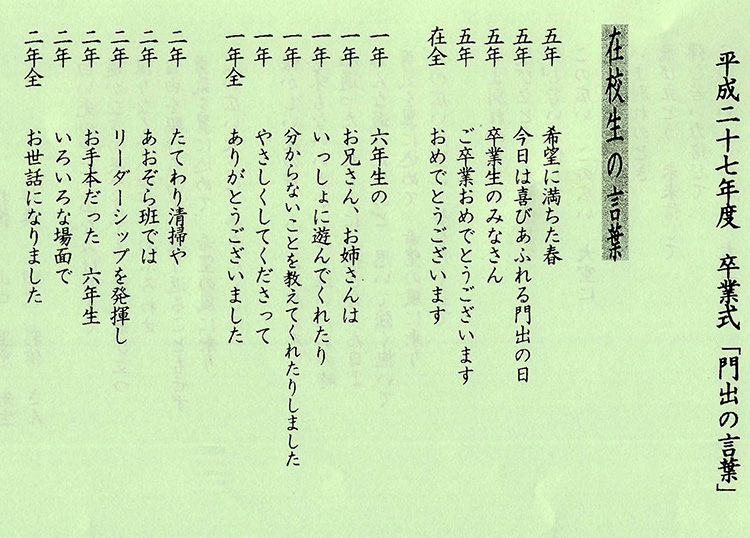 平成二十七年度　卒業式「門出の言葉」
在校生の言葉
五年　希望に満ちた春
五年　今日は喜びあふれる門出の日
五年　卒業生のみなさん
五年　ご卒業おめでとうございます
在全　おめでとうございます
一年　六年生の
一年　お兄さん、お姉さんは
一年　いっしょに遊んでくれたり
一年　分からないことを教えてくれたりしました
一年　やさしくしてくださって
一年全　ありがとうございました
二年　たてわり清掃や
二年　あおぞら班では
二年　リーダーシップを発揮し
二年　お手本だった　六年生
二年　いろいろな場面で
二年全　お世話になりました